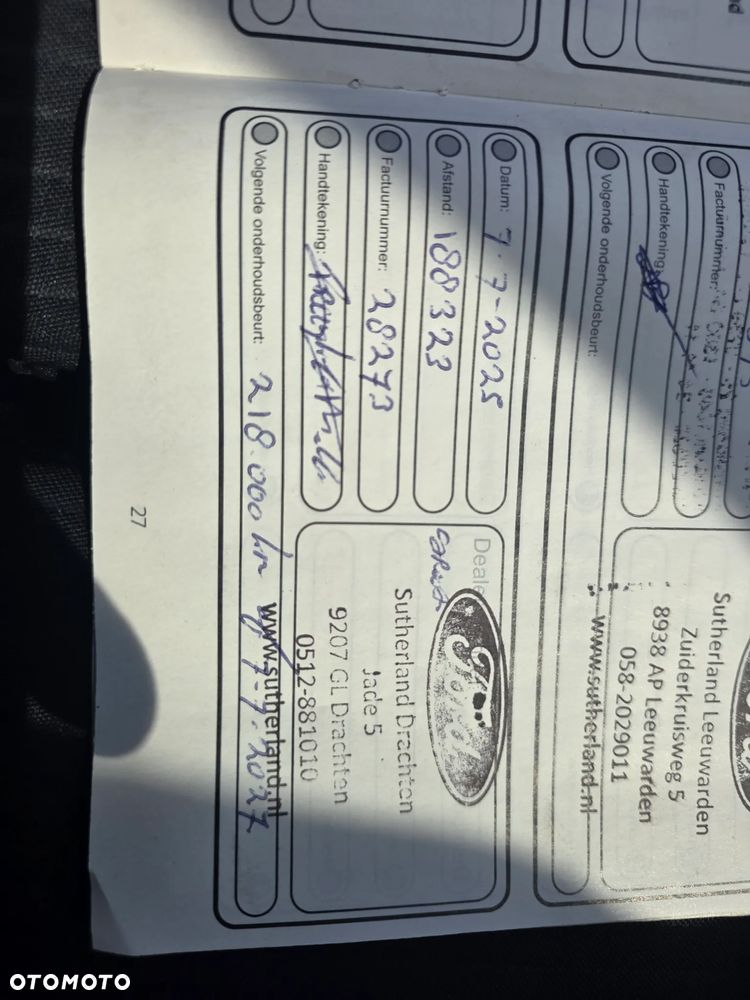 Factuurnummer:
Handtekening:
Volgende onderhoudsbeurt:
Sutherland Leeuwarden
Zuiderkruisweg 5
8938 AP Leeuwarden
058-2029011
www.sutherland.nl
Datum: 7-7-2025
Afstand: 188323
Factuurnummer: 28273
Handtekening:
Volgende onderhoudsbeurt: 218.000 km 7-7-2027
Deale
Ford
Sutherland Drachten
Jade 5
9207 GL Drachten
0512-881010
www.sutherland.nl
27
OTOMOTO